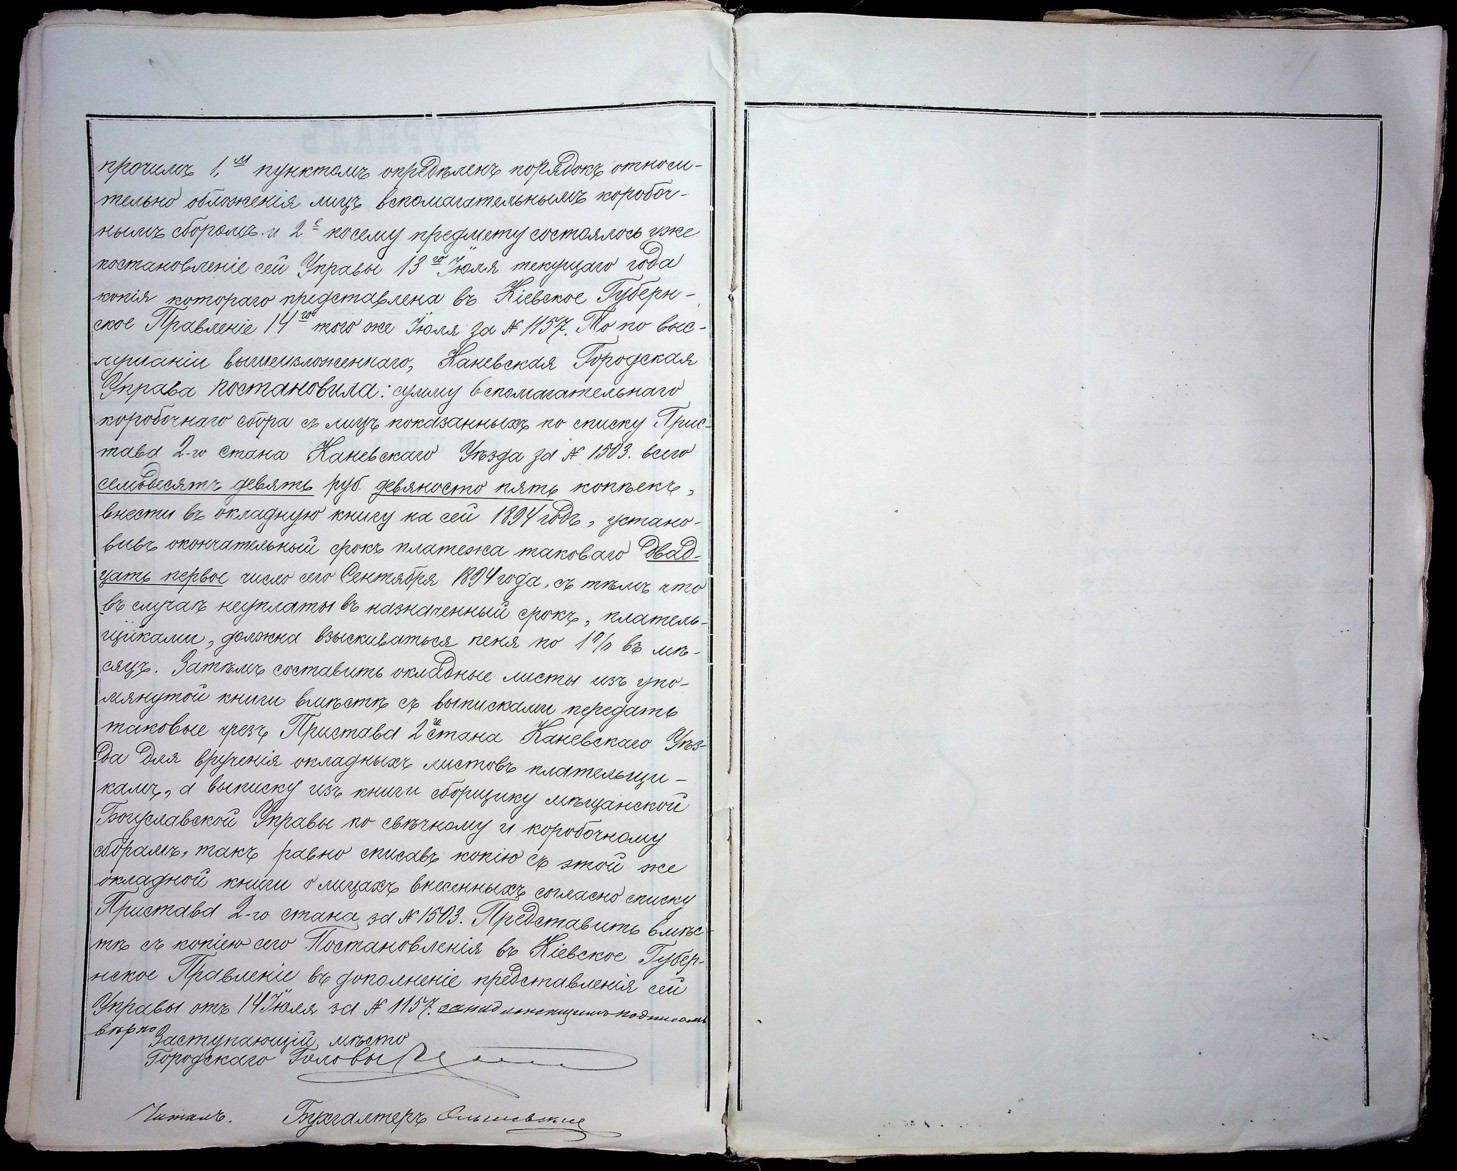 прочимъ 1м пунктомъ опредѣленъ порядокъ относи-
тельно обложенія лицъ вспомагательнымъ коробоч-
нымъ сборомъ и 2е посему предмету состоялось уже
постановленіе сей Управы 13го Іюля текущаго года
копія котораго представлена въ Кіевское Губерн-
ское Правленіе 14го того же Іюля за № 1157. То по выс-
лушаніи вышеизложеннаго, Каневская Городская
Управа постановила: сумму вспомагательнаго
коробочнаго сбора съ лицъ показанныхъ по списку Прис-
тава 2-го стана Каневскаго Уѣзда за № 1503. всего
семьдесятъ девять руб. девяносто пять копѣекъ,
внести въ окладную книгу на сей 1894 годъ, устано-
вивъ окончательный срокъ платежа таковаго двад-
цать первое число сего Сентября 1894 года, съ тѣмъ что
въ случаѣ неуплаты въ назначенный срокъ, платель-
щиками, должна взыскиваться пеня по 1% въ мѣ-
сяцъ. Затѣмъ составить окладные листы изъ упо-
мянутой книги вмѣстѣ съ выписками передать
таковые чрезъ Пристава 2го стана Каневскаго Уѣз-
да для врученія окладныхъ листовъ плательщи-
камъ, а выписку изъ книги сборщику мѣщанской
Богуславской Управы по свѣчному и коробочному
сборамъ, такъ равно списавъ копію съ этой же
окладной книги о лицахъ внесенныхъ согласно списку
Пристава 2-го стана за № 1503. Представить вмѣс-
тѣ съ копіею сего Постановленія въ Кіевское Губер-
нское Правленіе въ дополненіе представленія сей
Управы отъ 14 Іюля за № 1157. за надлежащимъ подписомъ
вѣрно
Заступающій мѣсто
Городскаго Головы
Читалъ. Бухгалтеръ Ольшовскій